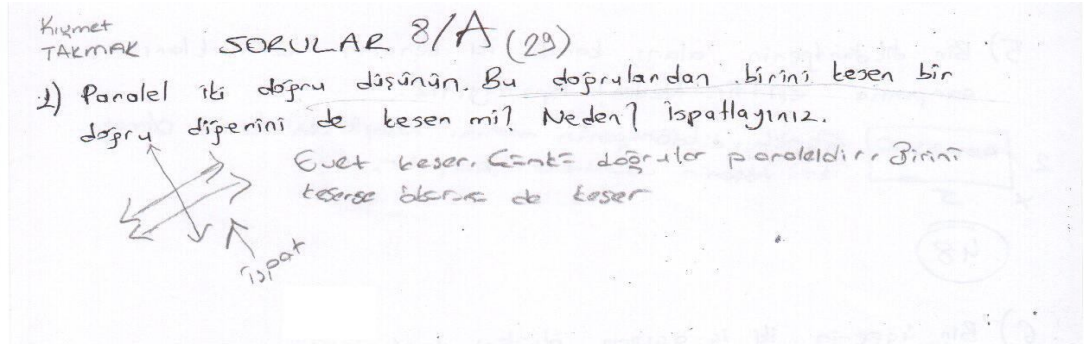 Kıymet
TAKMAK
SORULAR 8/A (29)
1) Paralel iki doğru düşünün. Bu doğrulardan birini kesen bir
doğru diğerini de keser mi? Neden? İspatlayınız.
Evet keser. Çünkü doğrular paraleldir. Birini
keserse öbürünü de keser
ispat